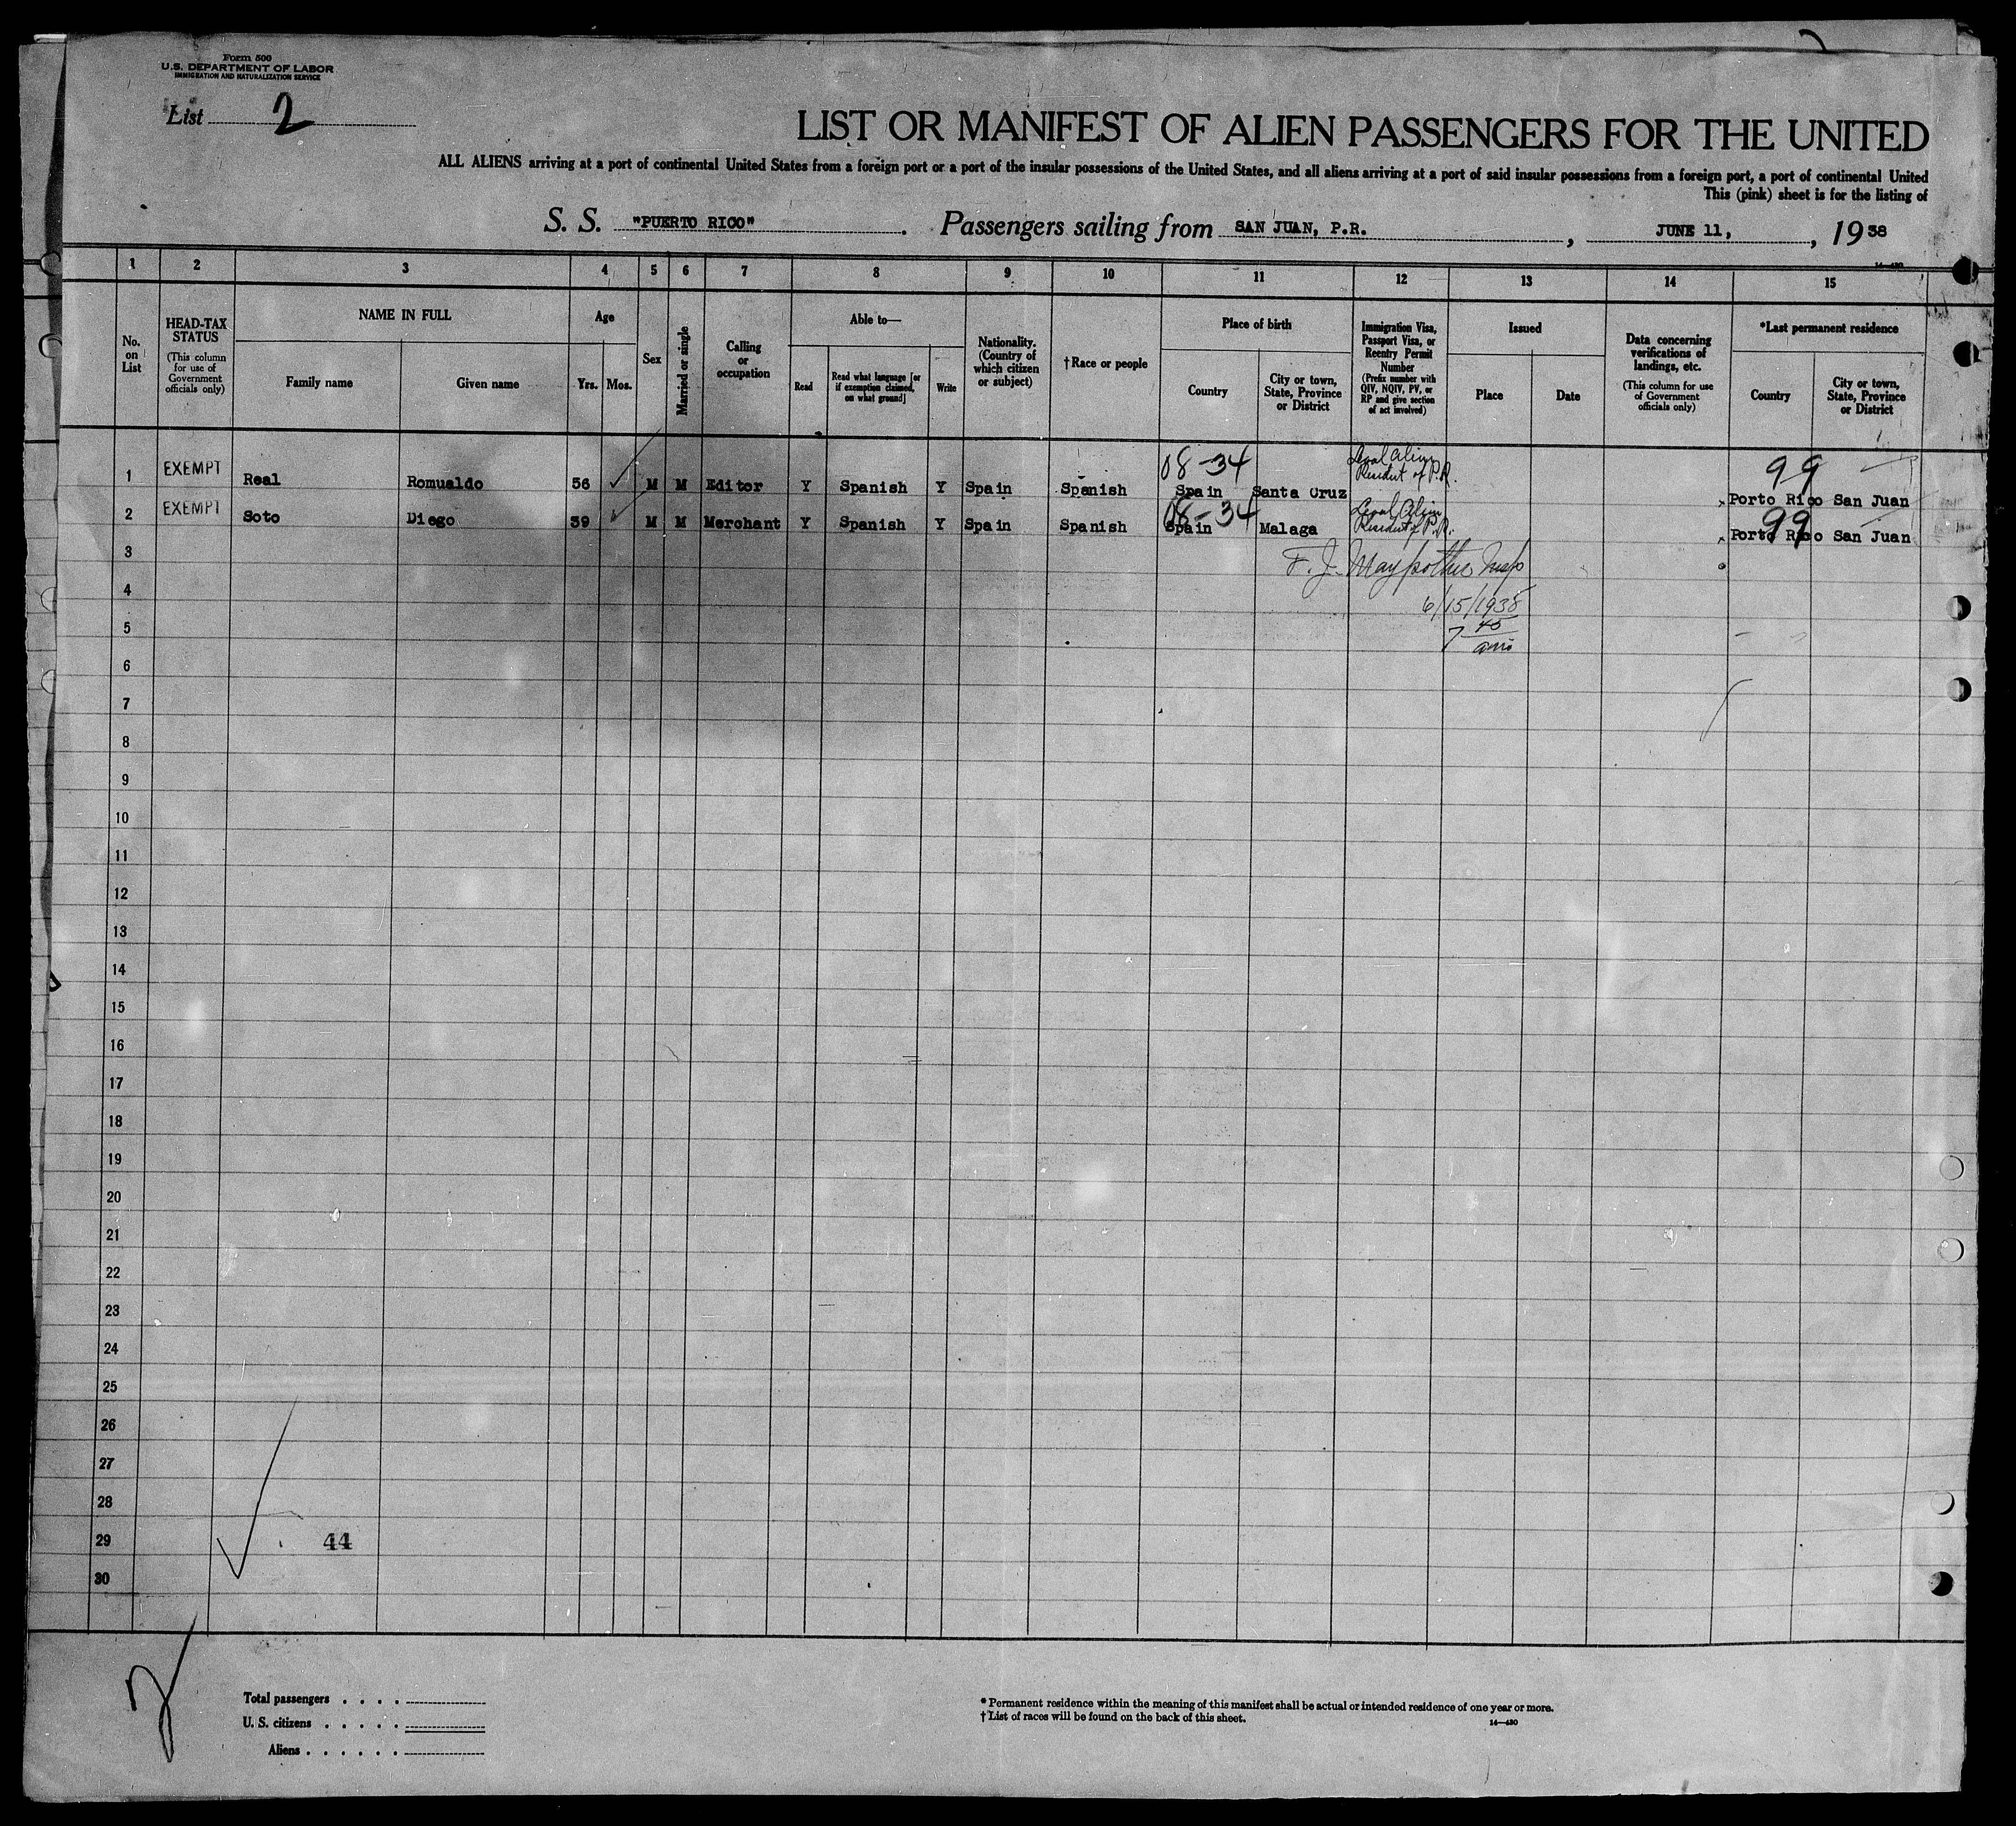 Form 500
U.S. DEPARTMENT OF LABOR
IMMIGRATION AND NATURALIZATION SERVICE
List 2
LIST OR MANIFEST OF ALIEN PASSENGERS FOR THE UNITED
ALL ALIENS arriving at a port of continental United States from a foreign port or a port of the insular possessions of the United States, and all aliens arriving at a port of said insular possessions from a foreign port, a port of continental United
This (pink) sheet is for the listing of
S. S. "PUERTO RICO". Passengers sailing from SAN JUAN, P.R., JUNE 11, , 1938
14—430
1 2 3 4 5 6 7 8 9 10 11 12 13 14 15
No. on List
HEAD-TAX STATUS
(This column for use of Government officials only)
NAME IN FULL
Family name
Given name
Age
Yrs. Mos.
Sex
Married or single
Calling or occupation
Able to—
Read
Read what language [or if exemption claimed, on what ground]
Write
Nationality. (Country of which citizen or subject)
†Race or people
Place of birth
Country
City or town, State, Province or District
Immigration Visa, Passport Visa, or Reentry Permit Number
(Prefix number with QIV, NQIV, PV, or RP and give section of act involved)
Issued
Place
Date
Data concerning verifications of landings, etc.
(This column for use of Government officials only)
*Last permanent residence
Country
City or town, State, Province or District
08-34 Legal Alien 99
1 EXEMPT Real Romualdo 56 M M Editor Y Spanish Y Spain Spanish Spain Santa Cruz Resident of P.R. Porto Rico San Juan
08-34 Legal Alien 99
2 EXEMPT Soto Diego 39 M M Merchant Y Spanish Y Spain Spanish Spain Malaga Resident of P.R. Porto Rico San Juan
3 F. J. Insp
4 6/15/1938
5 7 45 am
6
7
8
9
10
11
12
13
14
15
16
17
18
19
20
21
22
23
24
25
26
27
28
29 44
30
Total passengers . . . .
U. S. citizens . . . . .
Aliens . . . . . .
* Permanent residence within the meaning of this manifest shall be actual or intended residence of one year or more.
† List of races will be found on the back of this sheet.
14—430